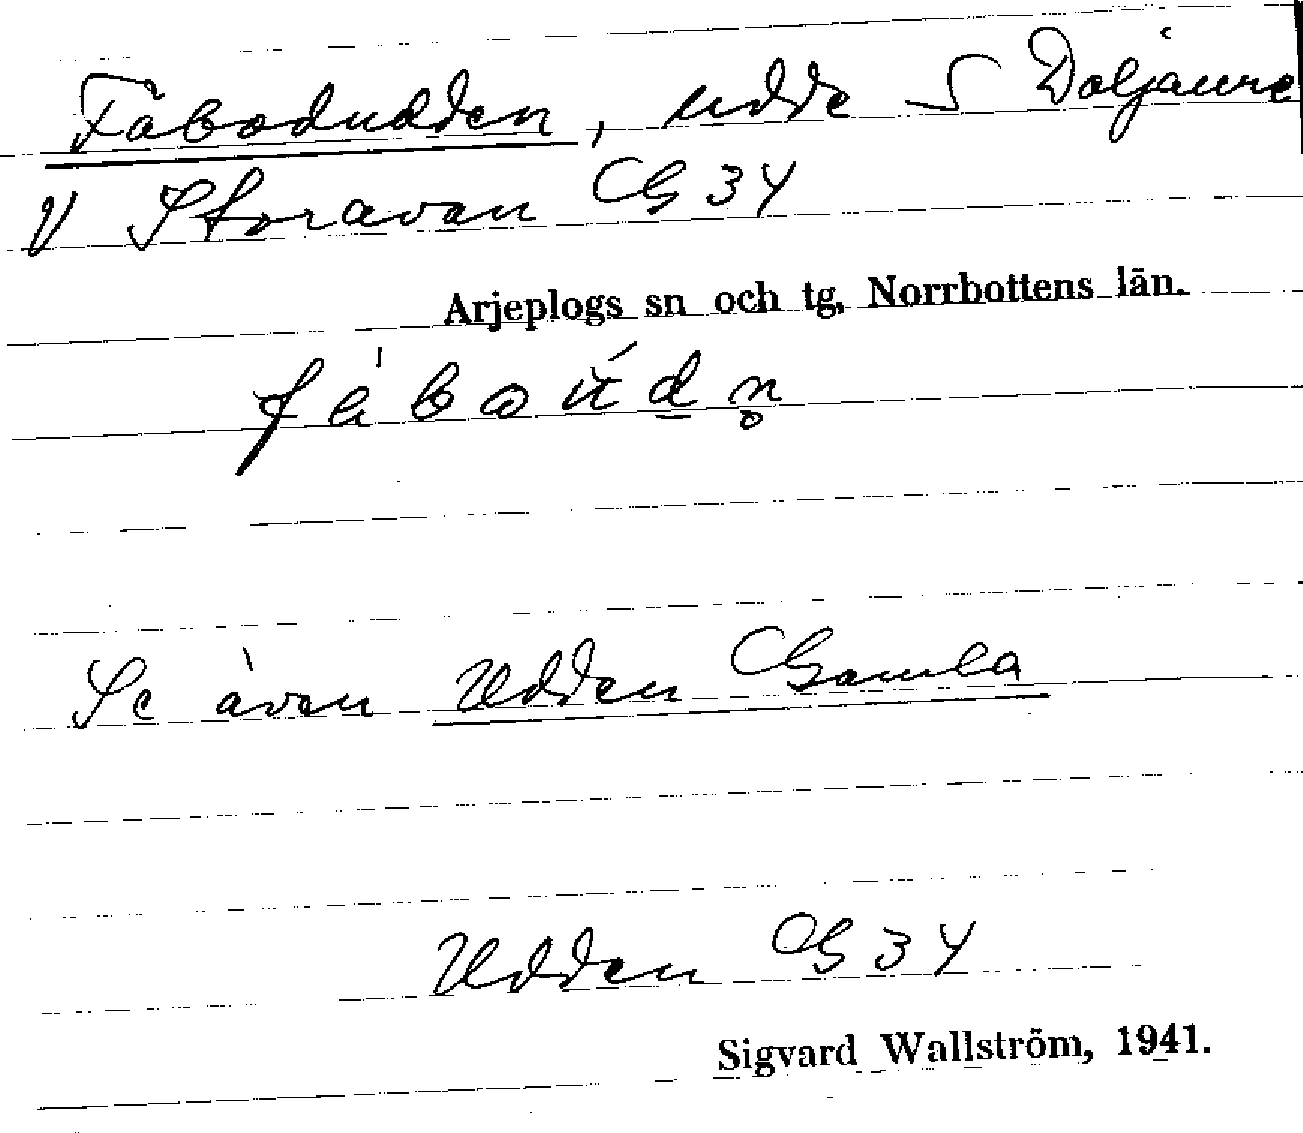 Fäbodudden, udde S Doljaure
V Storavan G 34
Arjeplogs sn och tg, Norrbottens län.
Se även Udden Gamla
Udden G 34
Sigvard Wallström, 1941.